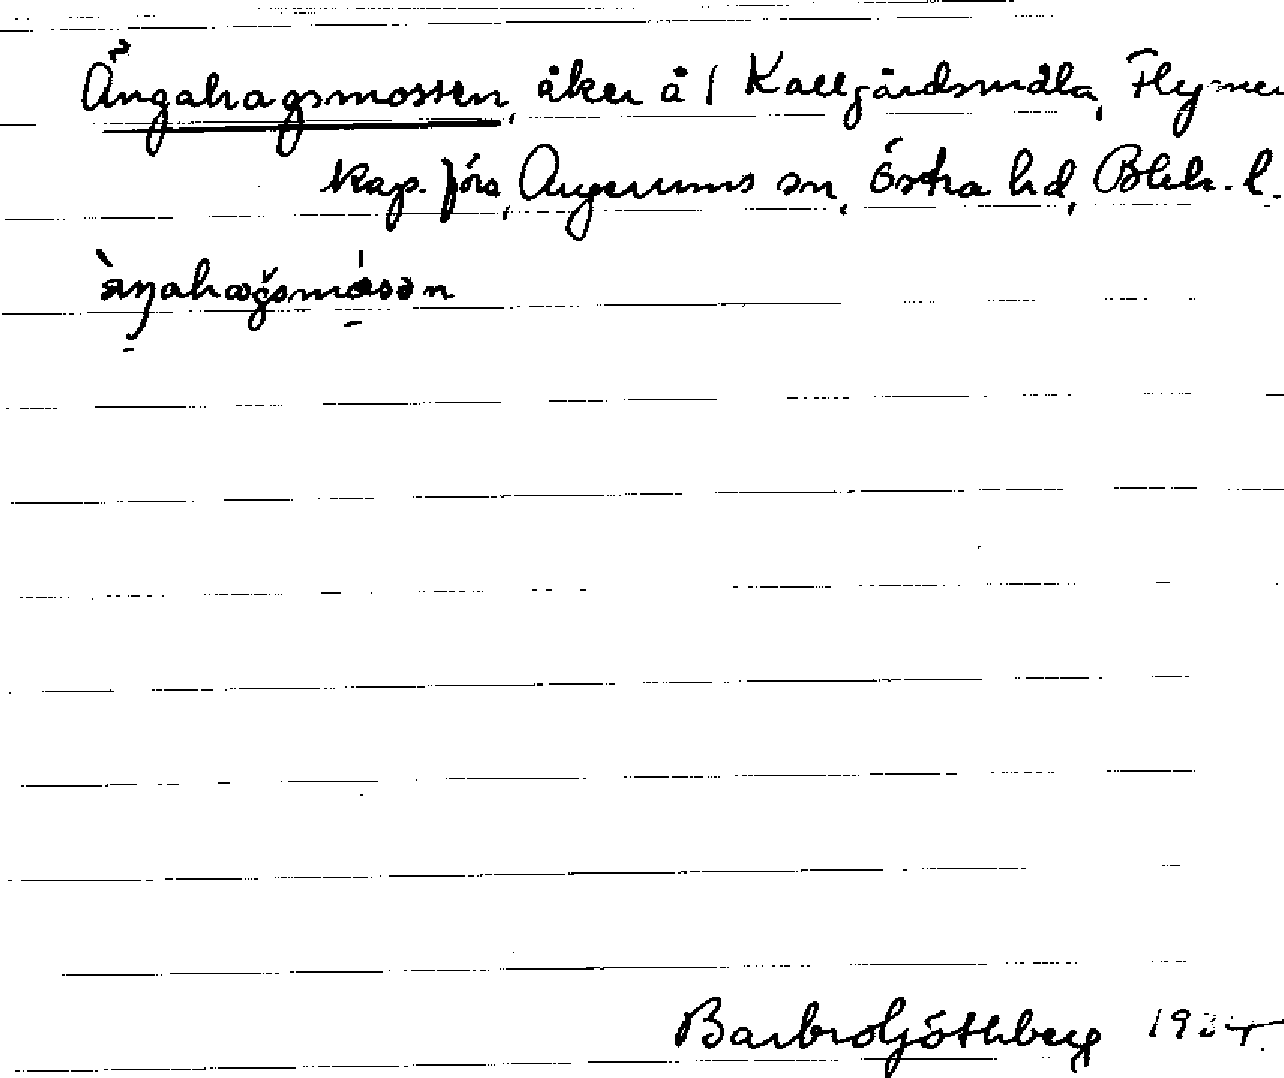 Ängahagsmossen, åker å 1 Kallgårdsmåla, Flymen
kap. förs, Augerums sn, Östra hd, Blek. l.
Barbro Göthberg